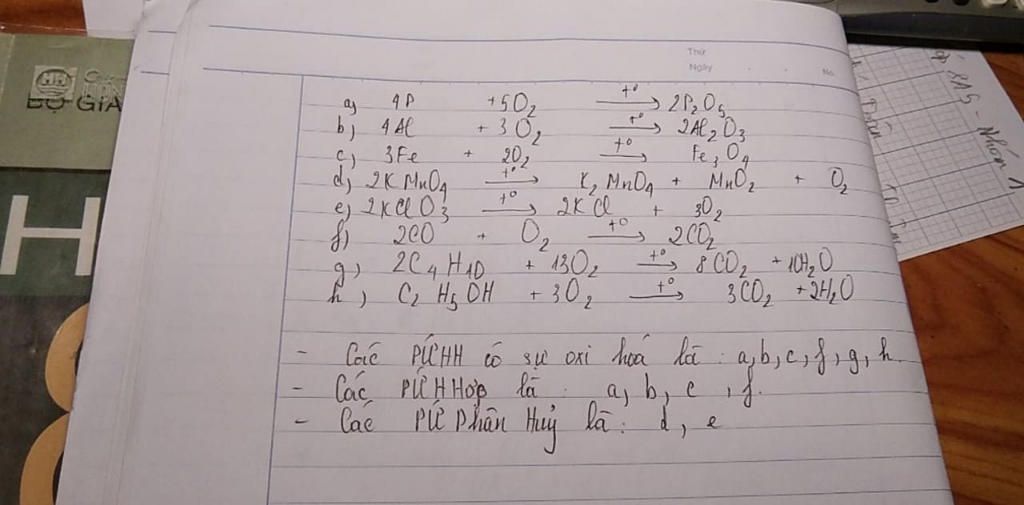 Thứ
Ngày
No.
BỘ GIÁ
H
a) 4P +5O₂ →(t°) 2P₂O₅
b) 4Al + 3O₂ →(t°) 2Al₂O₃
c) 3Fe + 2O₂ →(t°) Fe₃O₄
d) 2KMnO₄ →(t°) K₂MnO₄ + MnO₂ + O₂
e) 2KClO₃ →(t°) 2KCl + 3O₂
f) 2CO + O₂ →(t°) 2CO₂
g) 2C₄H₁₀ + 13O₂ →(t°) 8CO₂ + 10H₂O
h) C₂H₅OH + 3O₂ →(t°) 3CO₂ + 2H₂O
- Các PƯHH có sự oxi hoá là : a,b,c,f,g,h.
- Các PƯHHợp là : a, b, c, f.
- Các PƯ Phân Huỷ là: d, e
Nhóm 1